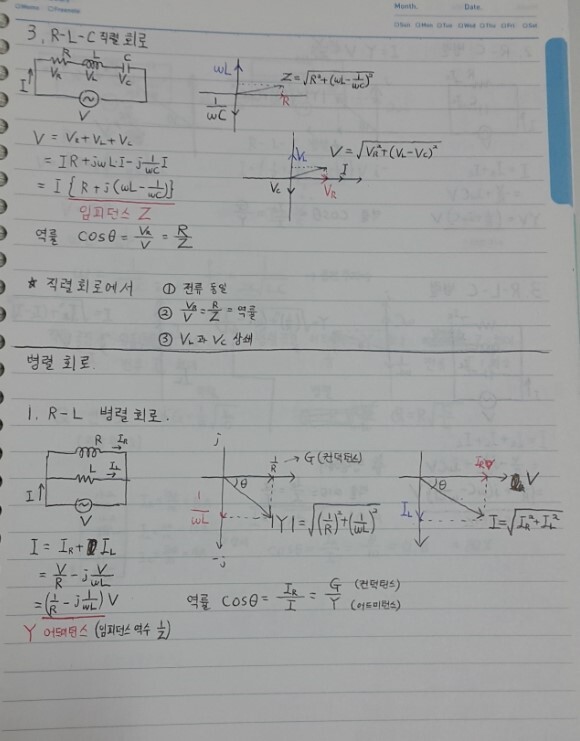 Memo
Month. Date.
Sun Mon Tue Wed Thu Fri Sat
3. R-L-C 직렬 회로
R L C
V_R V_L V_C
I
V
ωL
1/ωC
R
Z=√(R²+(ωL-1/ωC)²)
V = V_R + V_L + V_L
= IR+jωL·I-j(1/ωC)I
= I{R+j(ωL-1/ωC)}
임피던스 Z
V_L
V_C
V_R
I
V=√(V_R²+(V_L-V_C)²)
역률 cosθ = V_R/V = R/Z
* 직렬회로에서 ① 전류 동일
② V_R/V = R/Z = 역률
③ V_L과 V_C 상쇄
병렬 회로.
1. R-L 병렬 회로.
R I_R
L I_L
I
V
j
1/R → G (컨덕턴스)
θ
1/ωL
-j
|Y|=√((1/R)²+(1/ωL)²)
I_R
V
θ
I_L
I=√(I_R²+I_L²)
I = I_R + I_L
= V/R - j V/ωL
= (1/R - j 1/ωL) V
Y 어드미턴스 (임피던스 역수 1/Z)
역률 cosθ = I_R/I = G/Y (컨덕턴스)
(어드미턴스)